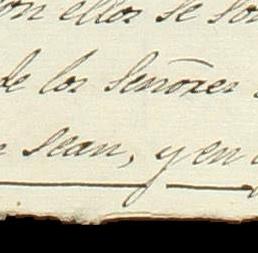 con ellos se so
de los Señores
sean, y en